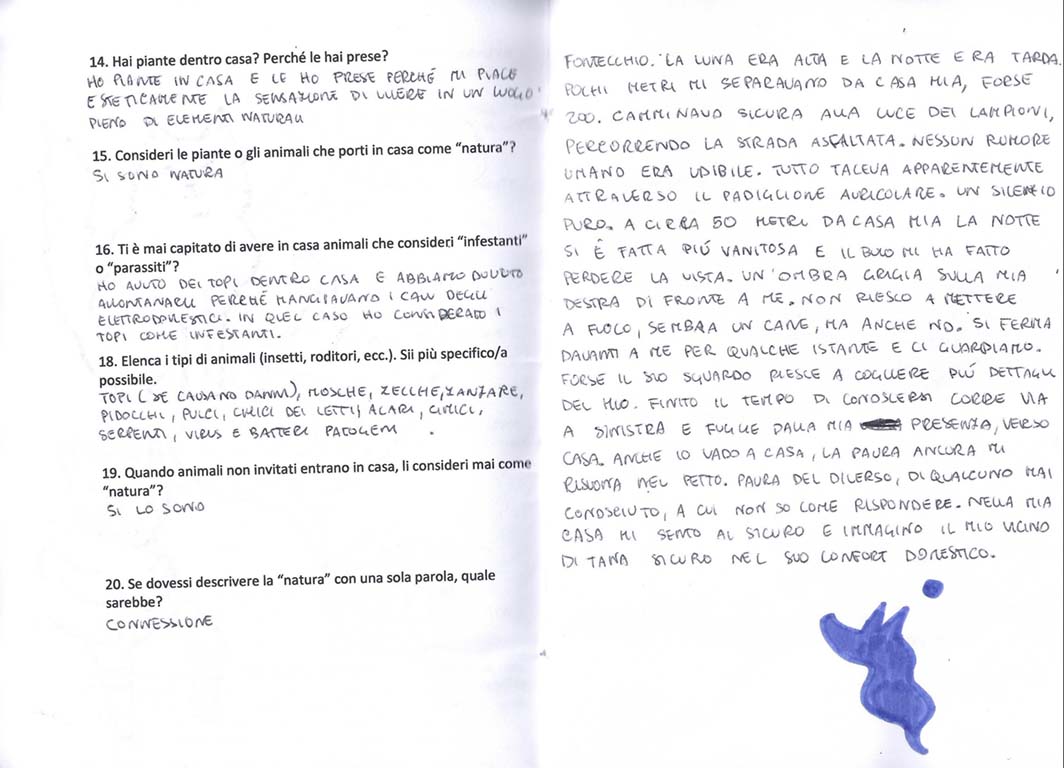 14. Hai piante dentro casa? Perché le hai prese?
HO PIANTE IN CASA E LE HO PRESE PERCHÉ MI PIACE
ESTETICAMENTE LA SENSAZIONE DI VIVERE IN UN LUOGO
PIENO DI ELEMENTI NATURALI
15. Consideri le piante o gli animali che porti in casa come “natura”?
SI SONO NATURA
16. Ti è mai capitato di avere in casa animali che consideri “infestanti”
o “parassiti”?
HO AVUTO DEI TOPI DENTRO CASA E ABBIAMO DOVUTO
ALLONTANARLI PERCHÉ MANGIAVANO I CAVI DEGLI
ELETTRODOMESTICI. IN QUEL CASO HO CONSIDERATO I
TOPI COME INFESTANTI.
18. Elenca i tipi di animali (insetti, roditori, ecc.). Sii più specifico/a
possibile.
TOPI (SE CAUSANO DANNI), MOSCHE, ZECCHE, ZANZARE,
PIDOCCHI, PULCI, CIMICI DEI LETTI, ACARI, CIMICI,
SERPENTI, VIRUS E BATTERI PATOGENI
19. Quando animali non invitati entrano in casa, li consideri mai come
“natura”?
SI LO SONO
20. Se dovessi descrivere la “natura” con una sola parola, quale
sarebbe?
CONNESSIONE
FONTECCHIO. LA LUNA ERA ALTA E LA NOTTE ERA TARDA.
POCHI METRI MI SEPARAVANO DA CASA MIA, FORSE
200. CAMMINAVO SICURA ALLA LUCE DEI LAMPIONI,
PERCORRENDO LA STRADA ASFALTATA. NESSUN RUMORE
UMANO ERA UDIBILE. TUTTO TACEVA APPARENTEMENTE
ATTRAVERSO IL PADIGLIONE AURICOLARE. UN SILENZIO
PURO. A CIRCA 50 METRI DA CASA MIA LA NOTTE
SI È FATTA PIÚ VANITOSA E IL BUIO MI HA FATTO
PERDERE LA VISTA. UN'OMBRA GRIGIA SULLA MIA
DESTRA DI FRONTE A ME. NON RIESCO A METTERE
A FUOCO, SEMBRA UN CANE, MA ANCHE NO. SI FERMA
DAVANTI A ME PER QUALCHE ISTANTE E CI GUARDIAMO.
FORSE IL SUO SGUARDO RIESCE A COGLIERE PIÚ DETTAGLI
DEL MIO. FINITO IL TEMPO DI CONOSCERSI CORRE VIA
A SINISTRA E FUGGE DALLA MIA PRESENZA, VERSO
CASA. ANCHE IO VADO A CASA, LA PAURA ANCORA MI
RISUONA NEL PETTO. PAURA DEL DIVERSO, DI QUALCUNO MAI
CONOSCIUTO, A CUI NON SO COME RISPONDERE. NELLA MIA
CASA MI SENTO AL SICURO E IMMAGINO IL MIO VICINO
DI TANA SICURO NEL SUO CONFORT DOMESTICO.